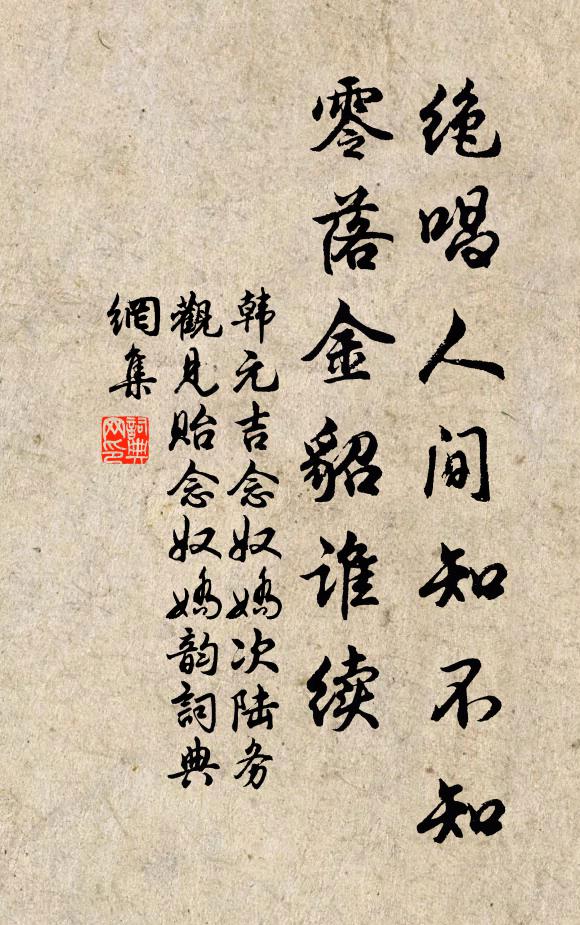 绝唱人间知不知
零落金貂谁续
韩元吉念奴娇次陆务
觀見贻念奴娇韵詞典
網集
詞典网印